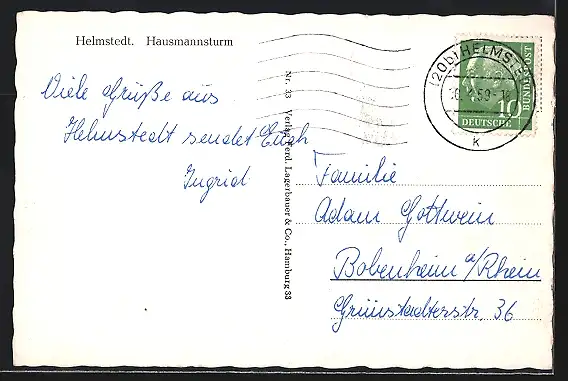 Helmstedt. Hausmannsturm
Viele Grüße aus
Helmstedt sendet Euch
Ingrid
Nr. 33 Verlag Ferd. Lagerbauer & Co., Hamburg 33
(20b) HELMSTEDT
59
k
10
DEUTSCHE
BUNDESPOST
Familie
Adam Gottwein
Bobenheim a/Rhein
Grünstadterstr. 36